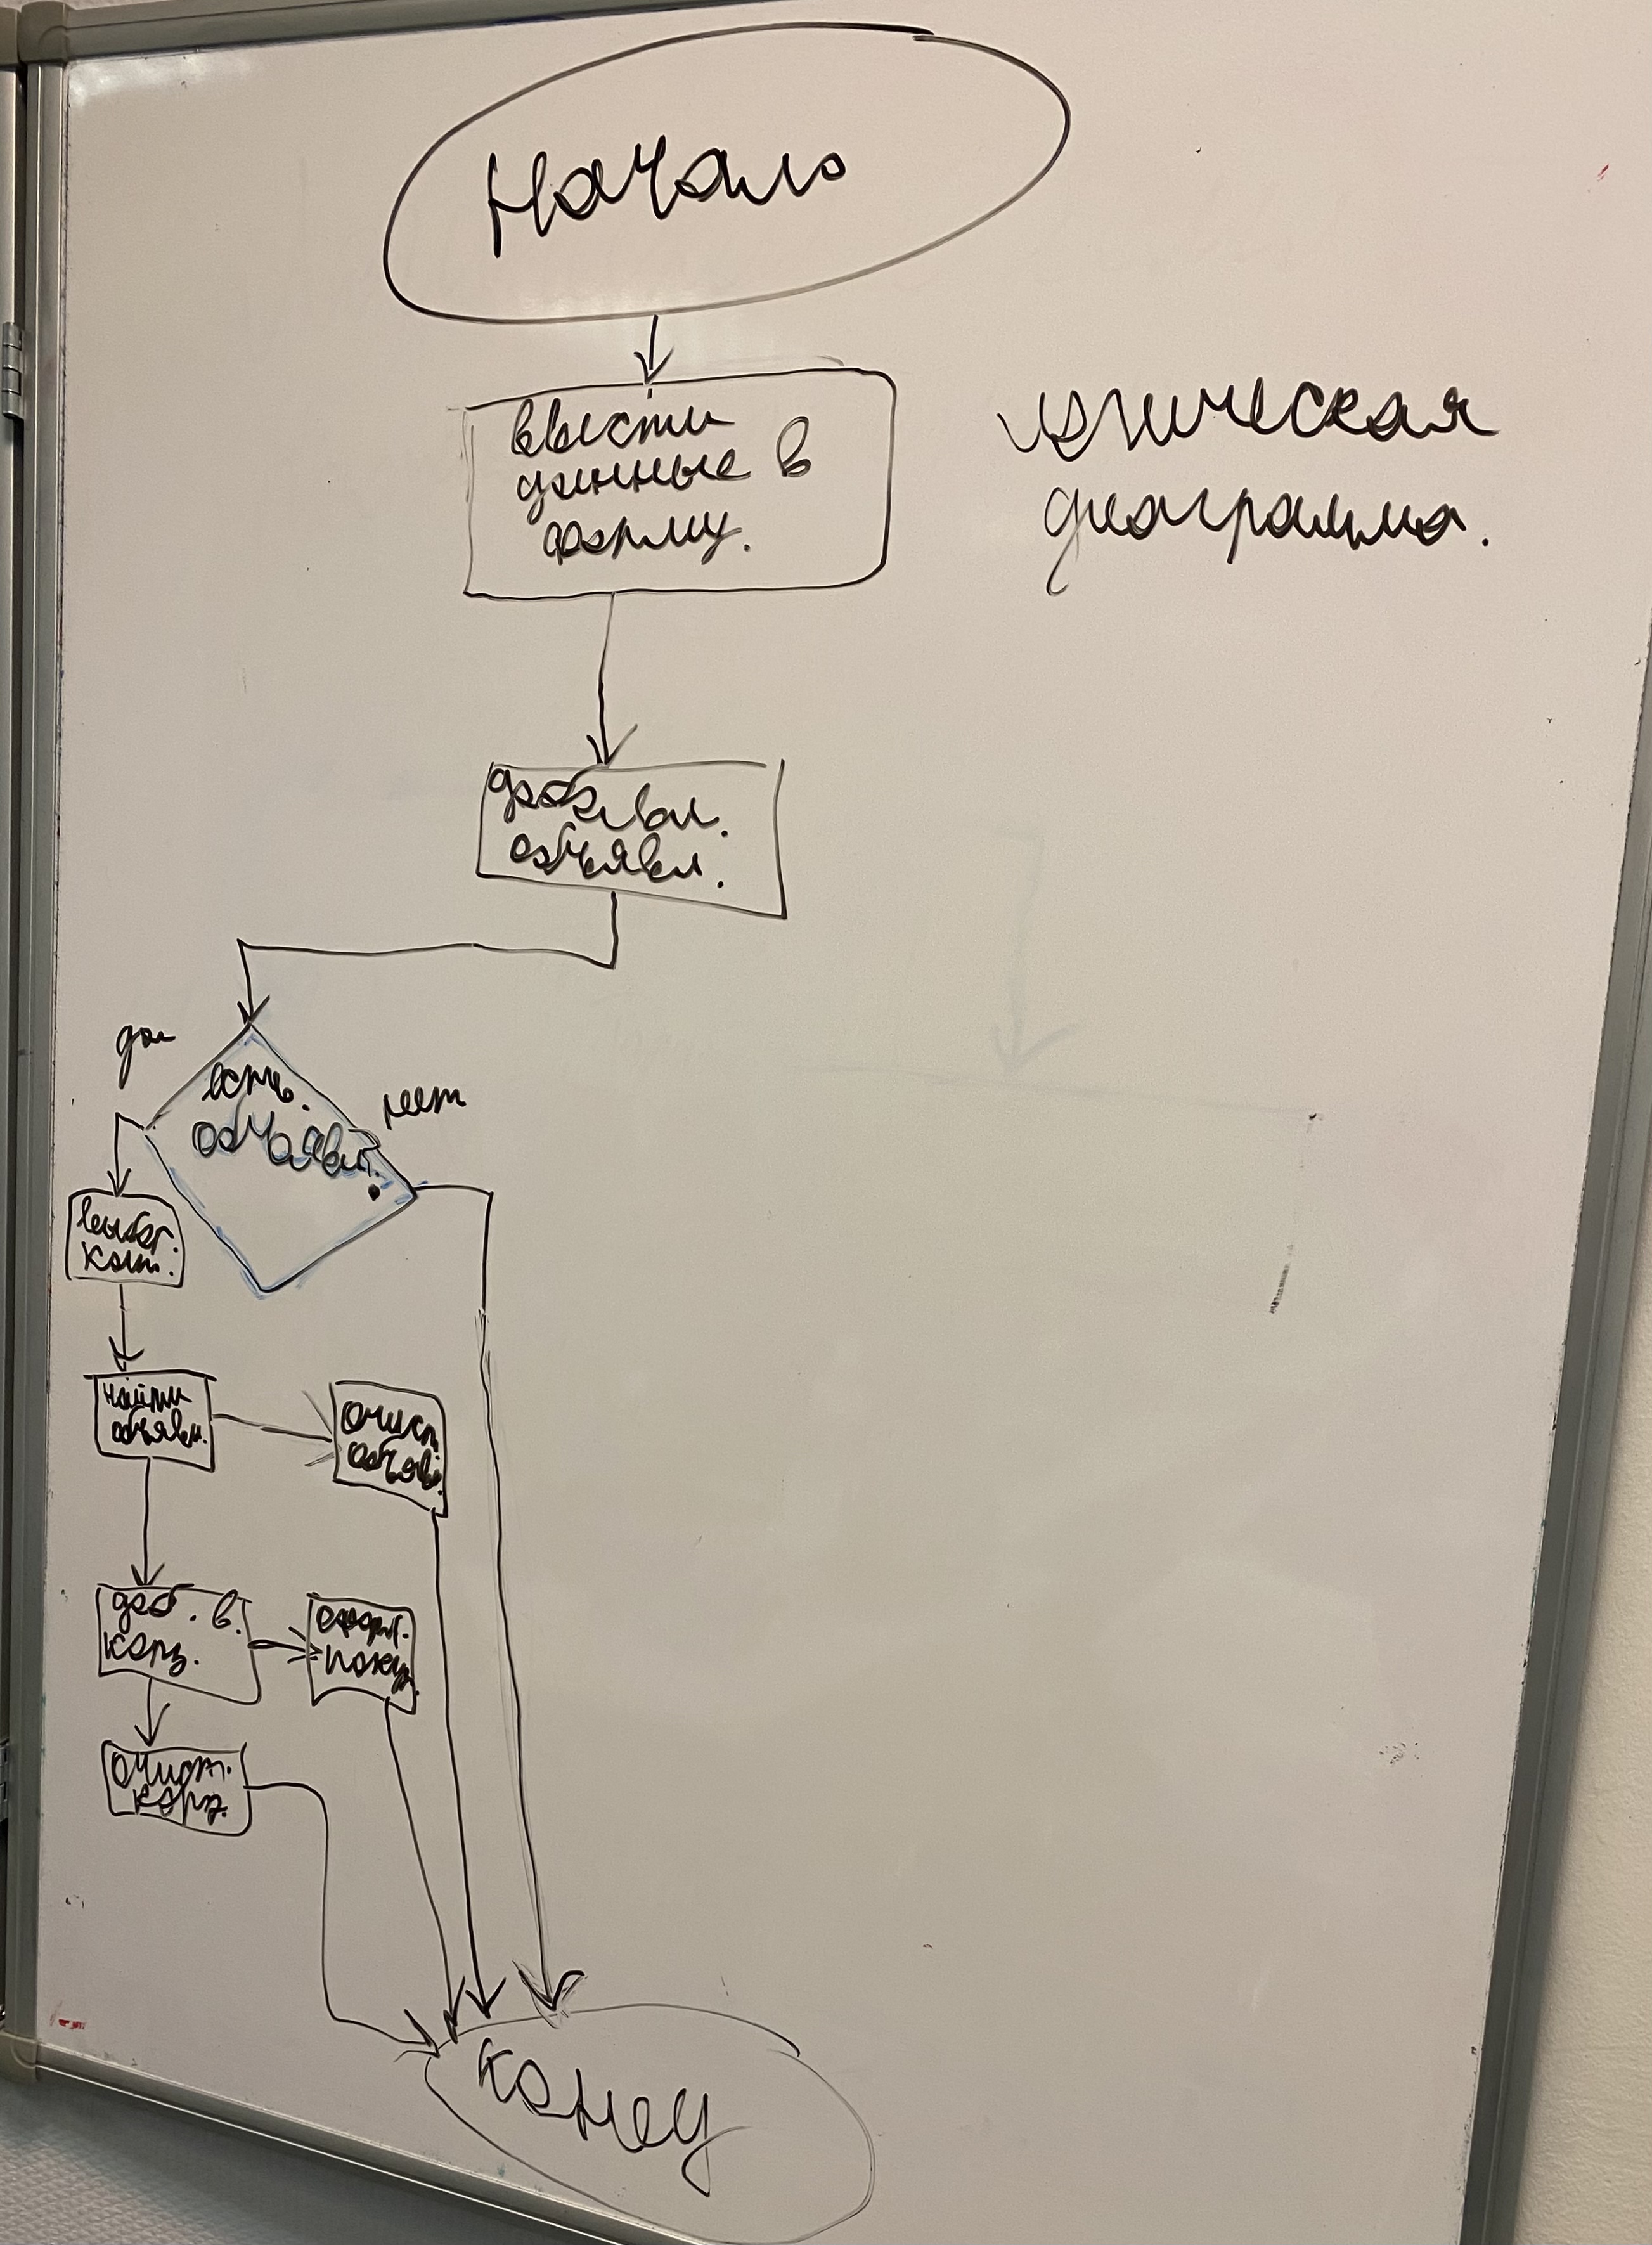 Начало
ввести
данные в
форму.
логическая
диаграмма.
добавл.
объявл.
да
есть.
объявл.
нет
выбр.
кат.
найти
объявл.
очист.
объяв.
доб. в.
корз.
оформ.
покуп.
очист.
корз.
конец